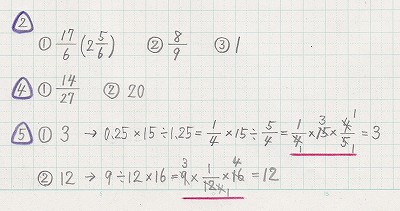 ② ① 17/6 (2 5/6) ② 8/9 ③ 1
④ ① 14/27 ② 20
⑤ ① 3 → 0.25×15÷1.25 = 1/4 ×15÷ 5/4 = 1/4 1 × 15 3 × 4 1/5 1 = 3
② 12 → 9÷12×16 = 9 3 × 1/12 4 1 × 16 4 = 12